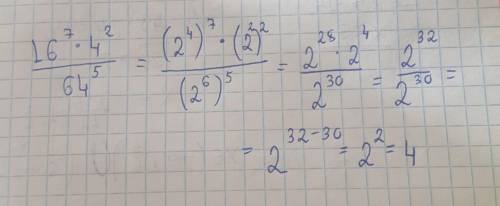 16⁷ · 4² / 64⁵ = (2⁴)⁷ · (2²)² / (2⁶)⁵ = 2²⁸ · 2⁴ / 2³⁰ = 2³² / 2³⁰ =
= 2³²⁻³⁰ = 2² = 4